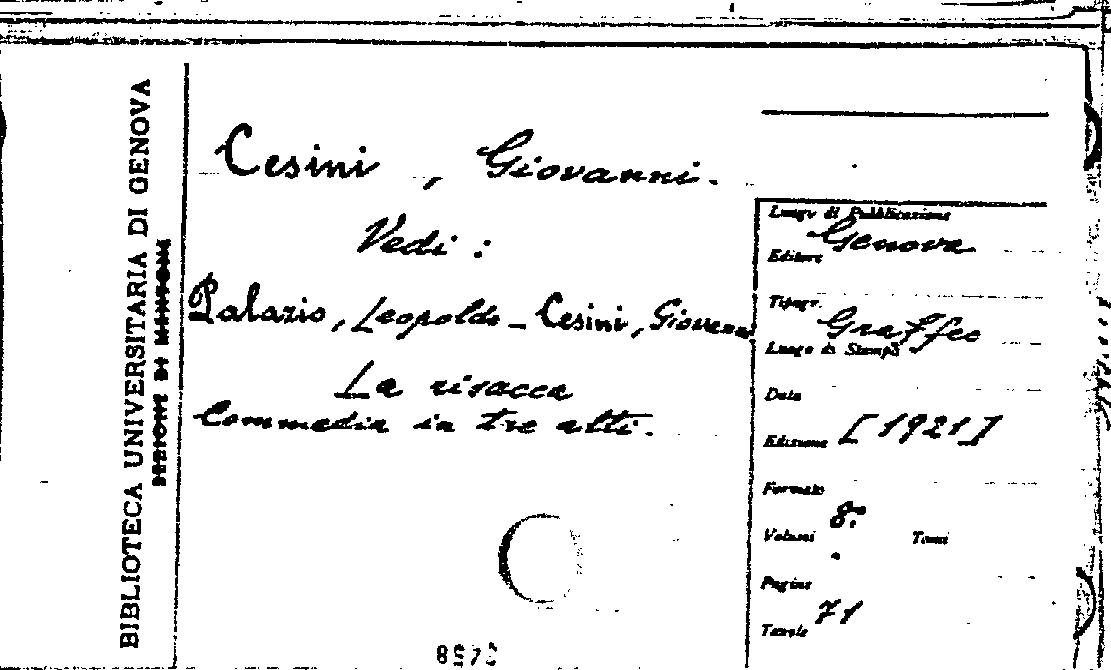 BIBLIOTECA UNIVERSITARIA DI GENOVA
Cesini, Giovanni.
Vedi:
Palazio, Leopoldo - Cesini, Giovanni
La risacca
Commedia in tre atti.
Luogo di Pubblicazione
Genova
Editore
Tipogr.
Graffeo
Luogo di Stampa
Data
[1921]
Edizione
Formato
8°
Volumi Tomi
Pagine
71
Tavole